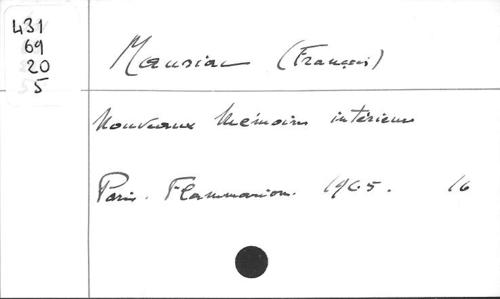 431
69
20
5
Mauriac (François)
Nouveaux Mémoires intérieurs
Paris. Flammarion. 1965. 16